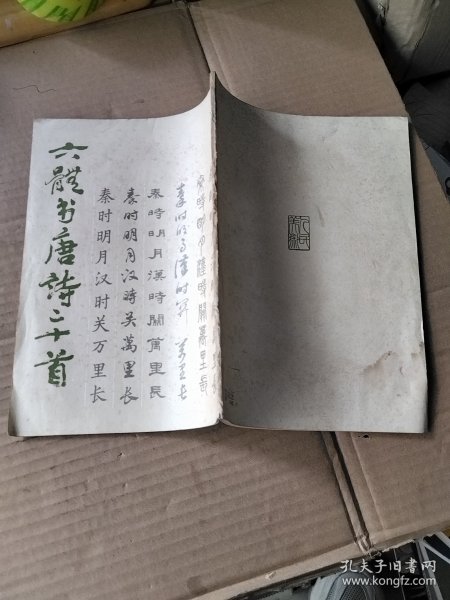 六體书唐詩二十首
秦时明月汉时关万里长
秦时明月汉时关萬里长
秦時明月漢時關萬里長
秦时明月漢时関萬里长
秦時明月漢時關萬里長
孔夫子旧书网
www.kongfz.com